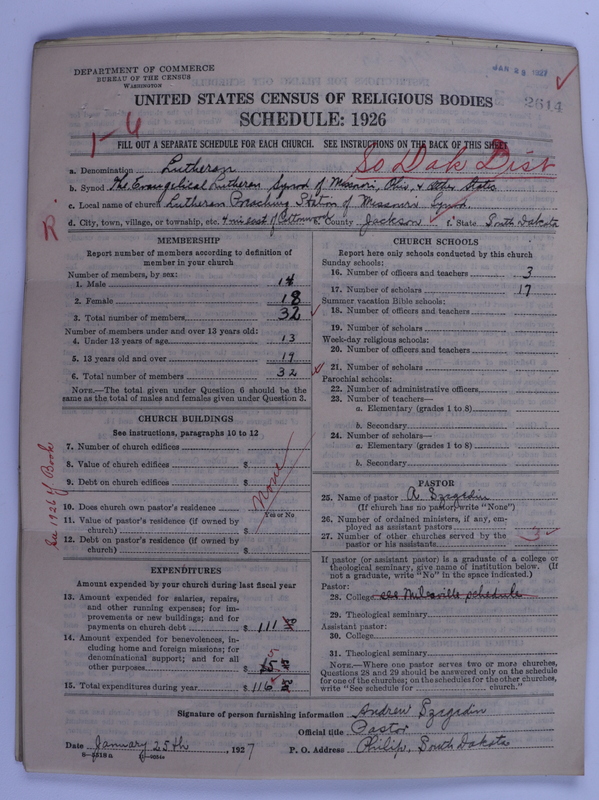 DEPARTMENT OF COMMERCE
BUREAU OF THE CENSUS
WASHINGTON
2614
UNITED STATES CENSUS OF RELIGIOUS BODIES
SCHEDULE: 1926
1-6
FILL OUT A SEPARATE SCHEDULE FOR EACH CHURCH. SEE INSTRUCTIONS ON THE BACK OF THIS SHEET
So Dak Dist
a. Denomination Lutheran
b. Synod The Evangelical Lutheran Synod of Missouri, Ohio, & other States
c. Local name of church Lutheran Preaching Station of Missouri Synod
d. City, town, village, or township, etc. 4 mi east of Cottonwood e. County Jackson f. State South Dakota
R.
MEMBERSHIP
Report number of members according to definition of
member in your church
Number of members, by sex:
1. Male 14
2. Female 18
3. Total number of members 32
Number of members under and over 13 years old:
4. Under 13 years of age 13
5. 13 years old and over 19
6. Total number of members 32
NOTE.—The total given under Question 6 should be the
same as the total of males and females given under Question 3.
CHURCH BUILDINGS
See instructions, paragraphs 10 to 12
7. Number of church edifices
8. Value of church edifices $
9. Debt on church edifices $
None
10. Does church own pastor's residence
Yes or No
11. Value of pastor's residence (if owned by
church) $
12. Debt on pastor's residence (if owned by
church) $
See 1926 of Book
EXPENDITURES
Amount expended by your church during last fiscal year
13. Amount expended for salaries, repairs,
and other running expenses; for im-
provements or new buildings; and for
payments on church debt $ 111
14. Amount expended for benevolences, in-
cluding home and foreign missions; for
denominational support; and for all
other purposes $
15. Total expenditures during year $ 116
CHURCH SCHOOLS
Report here only schools conducted by this church
Sunday schools:
16. Number of officers and teachers 3
17. Number of scholars 17
Summer vacation Bible schools:
18. Number of officers and teachers
19. Number of scholars
Week-day religious schools:
20. Number of officers and teachers
21. Number of scholars
Parochial schools:
22. Number of administrative officers
23. Number of teachers—
a. Elementary (grades 1 to 8)
b. Secondary
24. Number of scholars—
a. Elementary (grades 1 to 8)
b. Secondary
PASTOR
25. Name of pastor A. Szegedin
(If church has no pastor, write "None")
26. Number of ordained ministers, if any, em-
ployed as assistant pastors
27. Number of other churches served by the
pastor or his assistants 3
If pastor (or assistant pastor) is a graduate of a college or
theological seminary, give name of institution below. (If
not a graduate, write "No" in the space indicated.)
Pastor:
28. College see Milesville schedule
29. Theological seminary
Assistant pastor:
30. College
31. Theological seminary
NOTE.—Where one pastor serves two or more churches,
Questions 28 and 29 should be answered only on the schedule
for one of the churches; on the schedules for the other churches,
write "See schedule for church."
Signature of person furnishing information Andrew Szegedin
Official title Pastor
Date January 25th, 1927 P. O. Address Philip, South Dakota